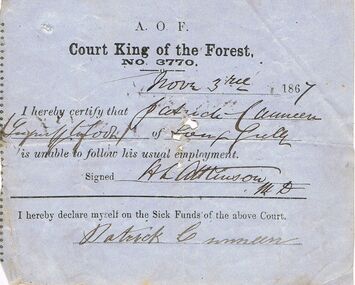 A. O. F.
Court King of the Forest,
NO. 3770.
Nov. 3rd 1867
I hereby certify that Patrick Cunneen
of Long Gully
is unable to follow his usual employment.
Signed H L Atkinson
M D
I hereby declare myself on the Sick Funds of the above Court.
Patrick Cunneen